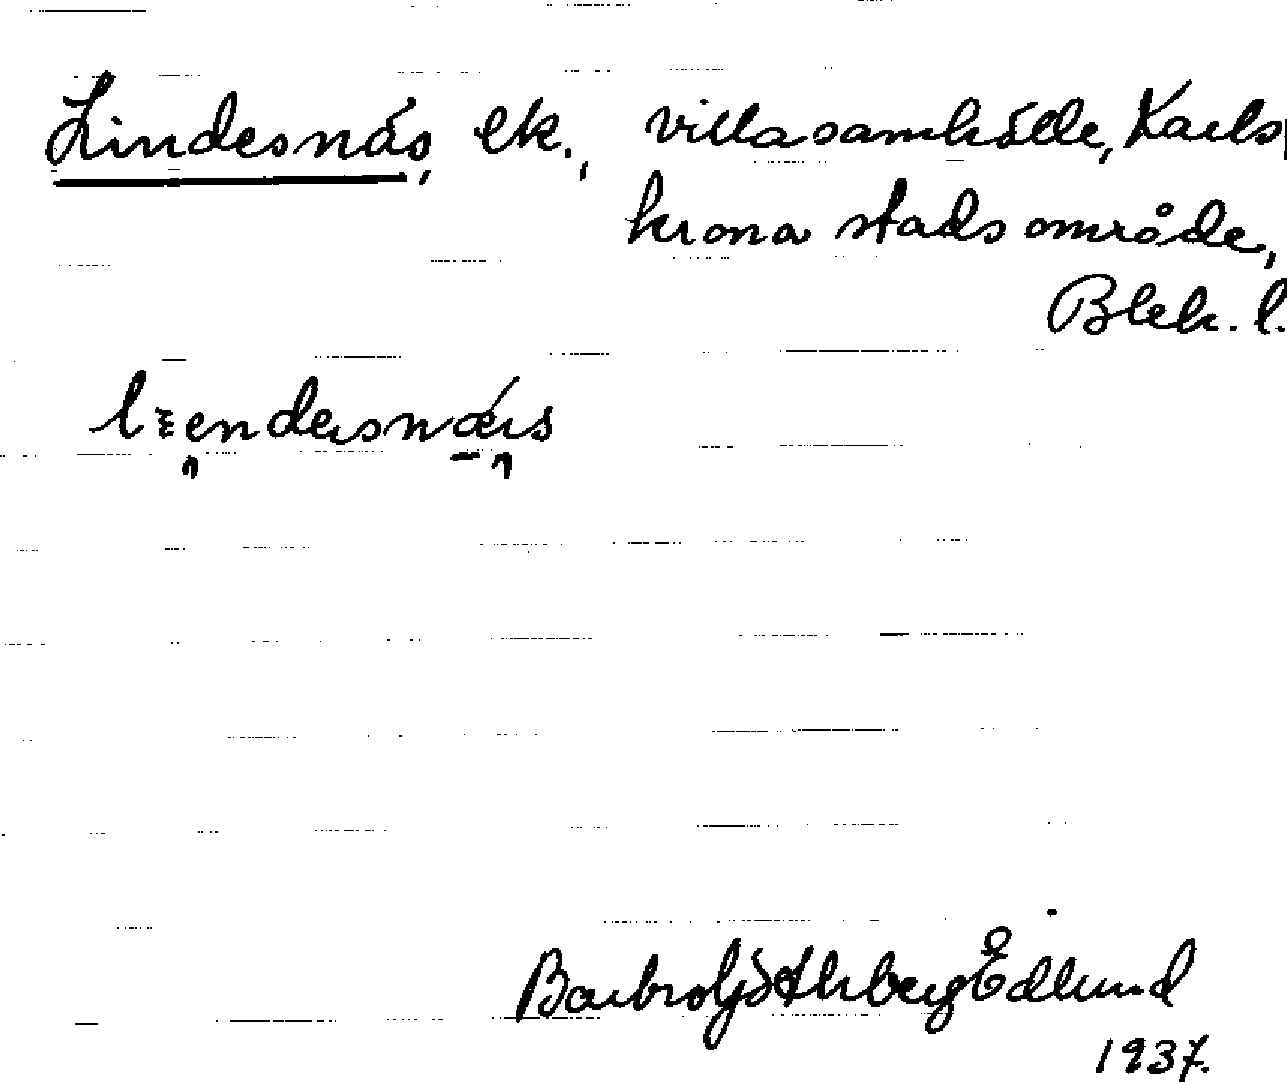 Lindesnäs, ek., villasamhälle, Karls-
krona stadsområde,
Blek. l.
Barbro Götherberg Edlund
1937.